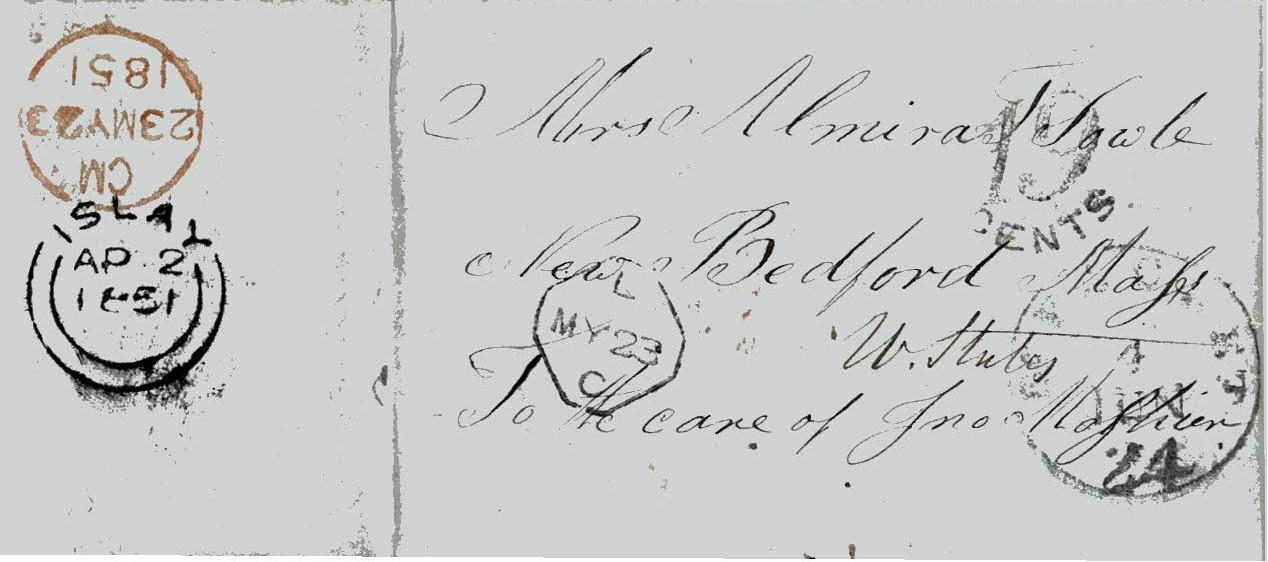 1851
23MY23
CM
AP 2
1851
Mrs Almira Fowle
19
CENTS
New Bedford Mass
U. States
To the care of Jno Mashier
L
MY 23
C
24